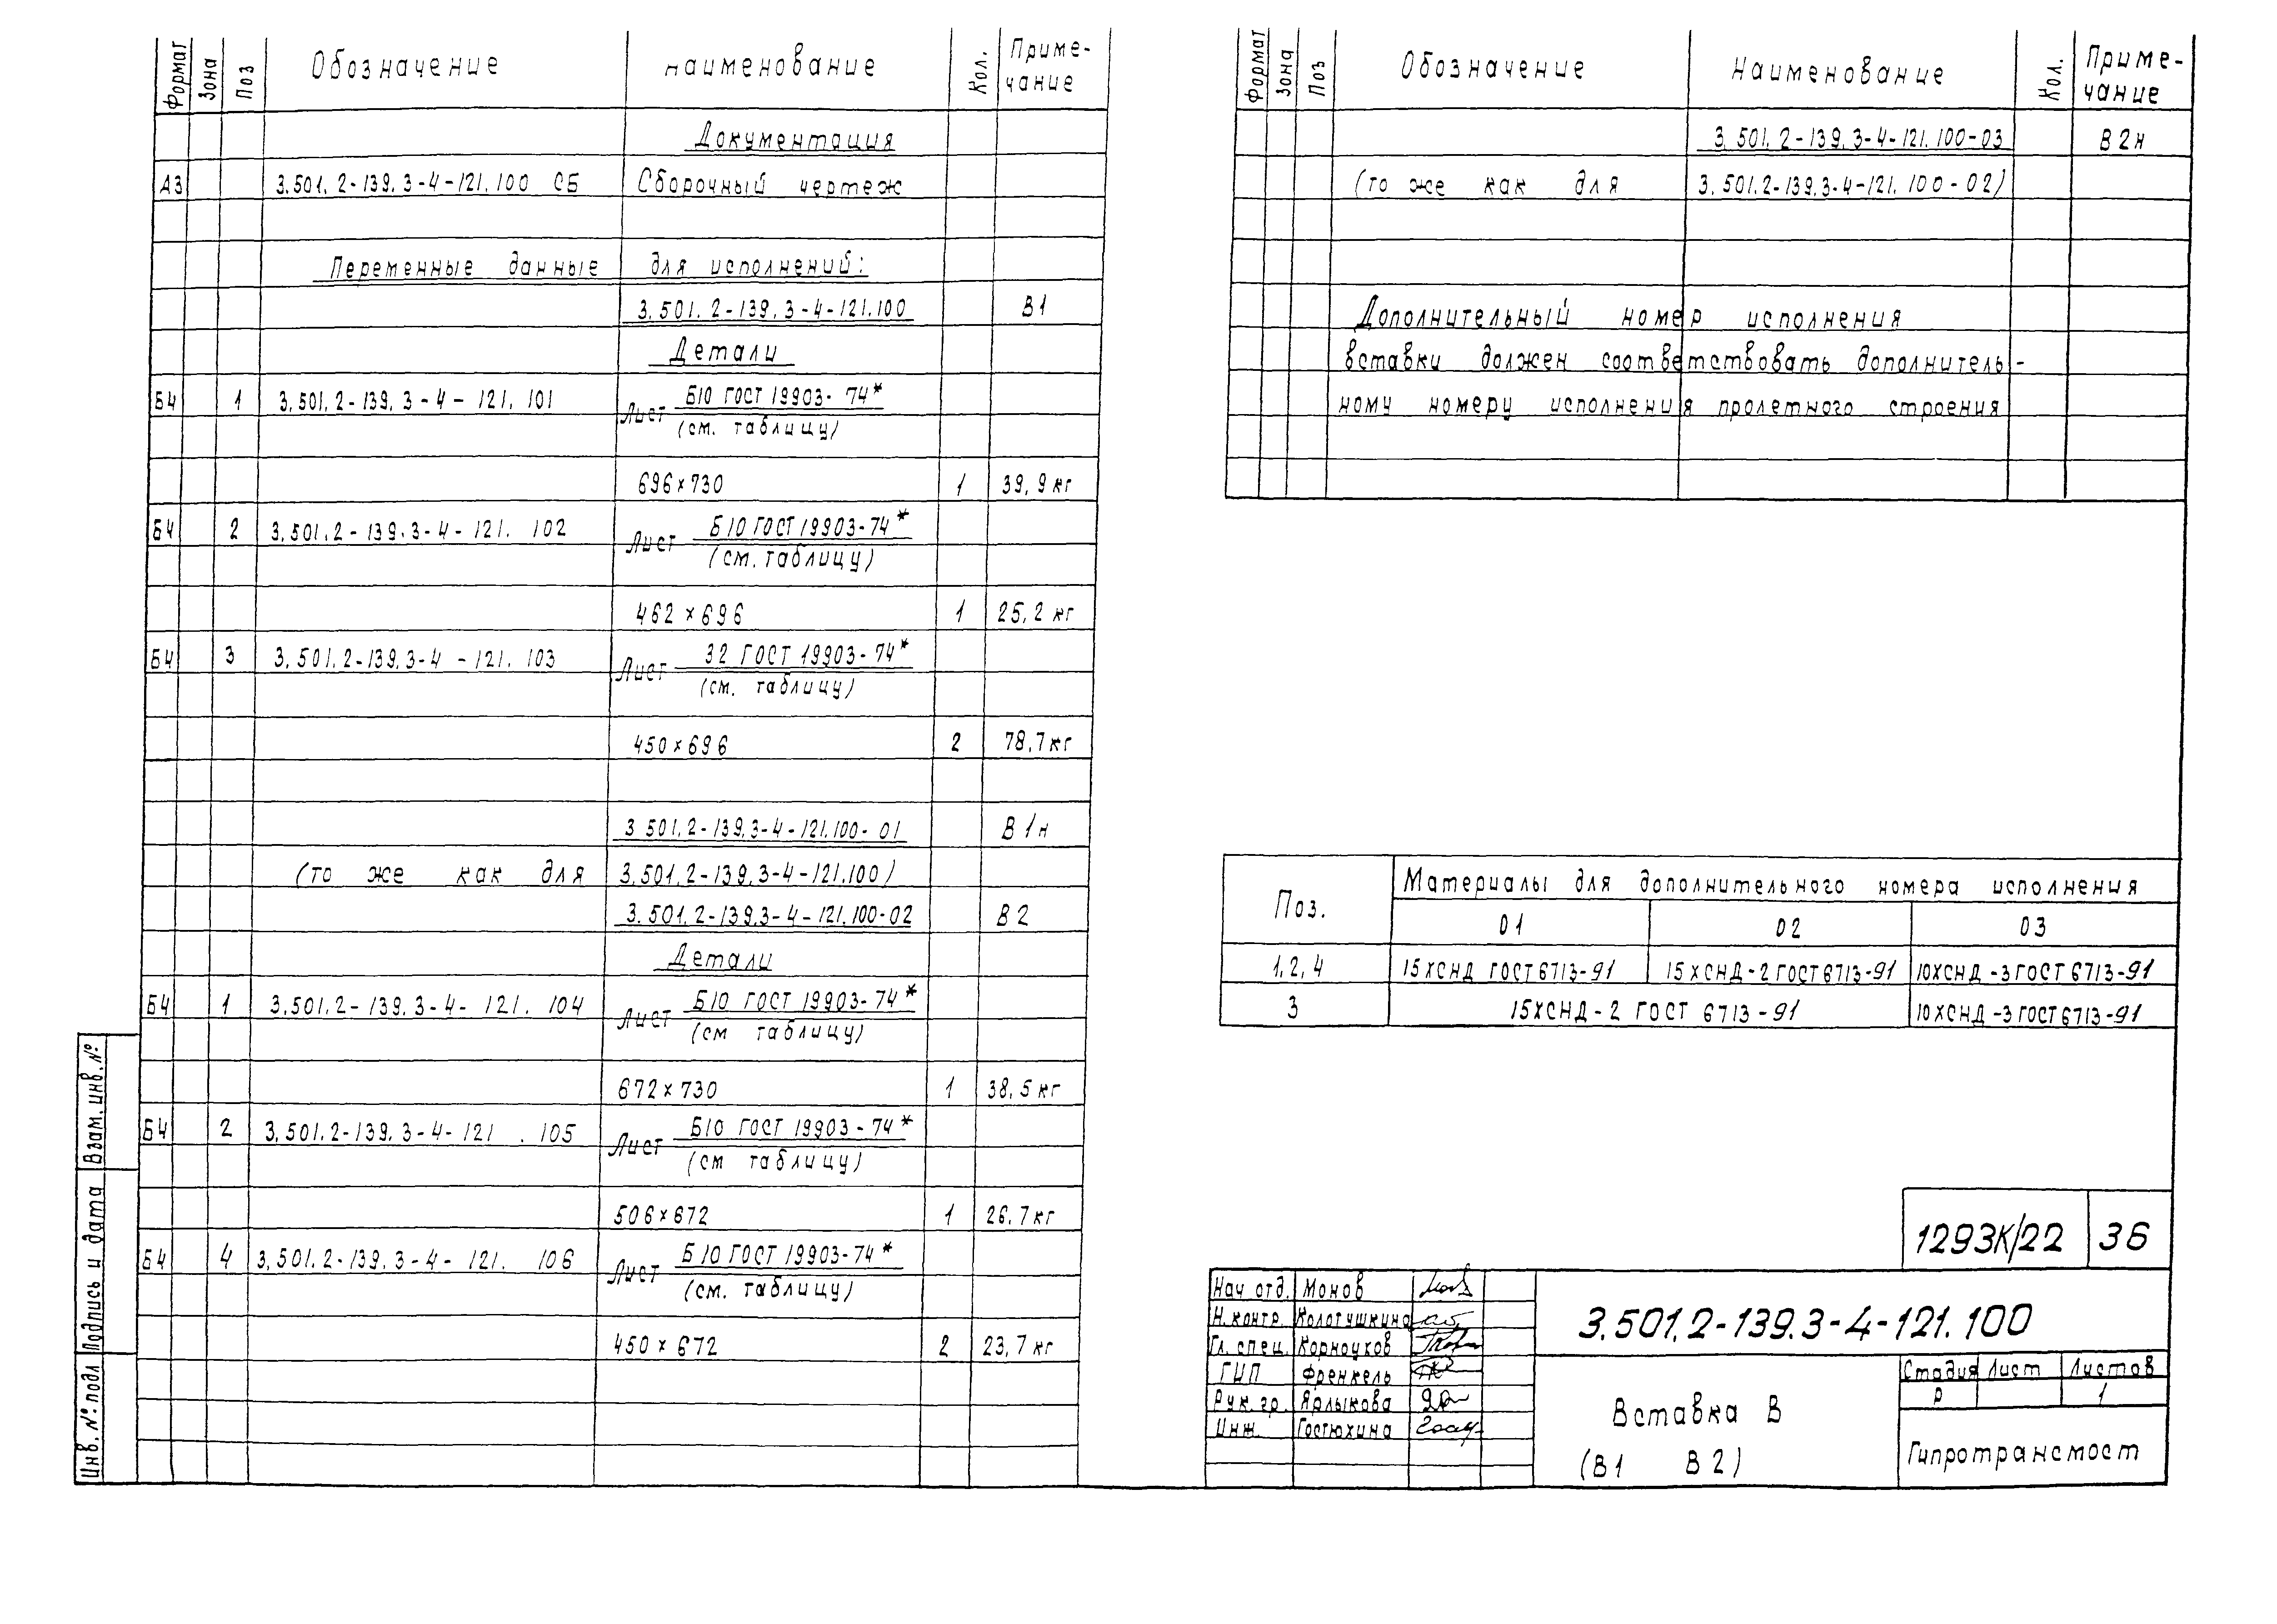 Формат Зона Поз Обозначение Наименование Кол. Приме-
чание
Документация
А3 3.501.2-139.3-4-121.100 СБ Сборочный чертеж
Переменные данные для исполнений:
3.501.2-139.3-4-121.100 В1
Детали
Б4 1 3.501.2-139.3-4-121.101 Лист Б10 ГОСТ 19903-74*
(см. таблицу)
696×730 1 39,9 кг
Б4 2 3.501.2-139.3-4-121.102 Лист Б10 ГОСТ 19903-74*
(см. таблицу)
462×696 1 25,2 кг
Б4 3 3.501.2-139.3-4-121.103 Лист 32 ГОСТ 19903-74*
(см. таблицу)
450×696 2 78,7 кг
3.501.2-139.3-4-121.100-01 В1н
(то же как для 3.501.2-139.3-4-121.100)
3.501.2-139.3-4-121.100-02 В2
Детали
Б4 1 3.501.2-139.3-4-121.104 Лист Б10 ГОСТ 19903-74*
(см таблицу)
672×730 1 38,5 кг
Б4 2 3.501.2-139.3-4-121.105 Лист Б10 ГОСТ 19903-74*
(см таблицу)
506×672 1 26,7 кг
Б4 4 3.501.2-139.3-4-121.106 Лист Б10 ГОСТ 19903-74*
(см. таблицу)
450×672 2 23,7 кг
Взам. инв. №
Подпись и дата
Инв. № подл
Формат Зона Поз Обозначение Наименование Кол. Приме-
чание
3.501.2-139.3-4-121.100-03 В2н
(то же как для 3.501.2-139.3-4-121.100-02)
Дополнительный номер исполнения
вставки должен соответствовать дополнитель-
ному номеру исполнения пролетного строения
Поз. Материалы для дополнительного номера исполнения
01 02 03
1,2,4 15ХСНД ГОСТ 6713-91 15ХСНД-2 ГОСТ 6713-91 10ХСНД-3 ГОСТ 6713-91
3 15ХСНД-2 ГОСТ 6713-91 10ХСНД-3 ГОСТ 6713-91
1293К/22 36
Нач отд. Монов
Н. контр. Колотушкина
Гл. спец. Корноухов
ГИП Френкель
Рук. гр. Ярлыкова
Инж. Гостюхина
3.501.2-139.3-4-121.100
Вставка В
(В1 В2)
Стадия Лист Листов
Р 1
Гипротрансмост